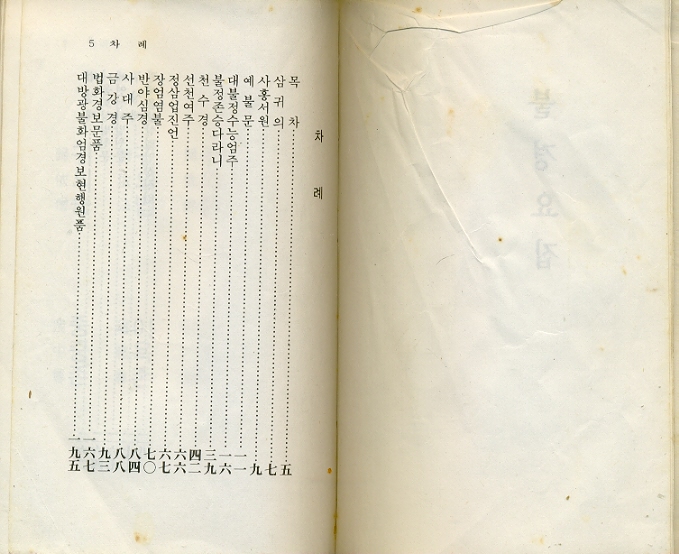 5 차 례
차 례
목 차 五
삼 귀 의 七
사홍서원 九
예 불 문 一一
대불정수능엄주 一六
불정존승다라니 三九
천 수 경 四二
선천여주 六六
정삼업진언 六七
장엄염불 七〇
반야심경 八四
사 대 주 八八
금 강 경 九三
법화경보문품 一六七
대방광불화엄경보현행원품 一九五